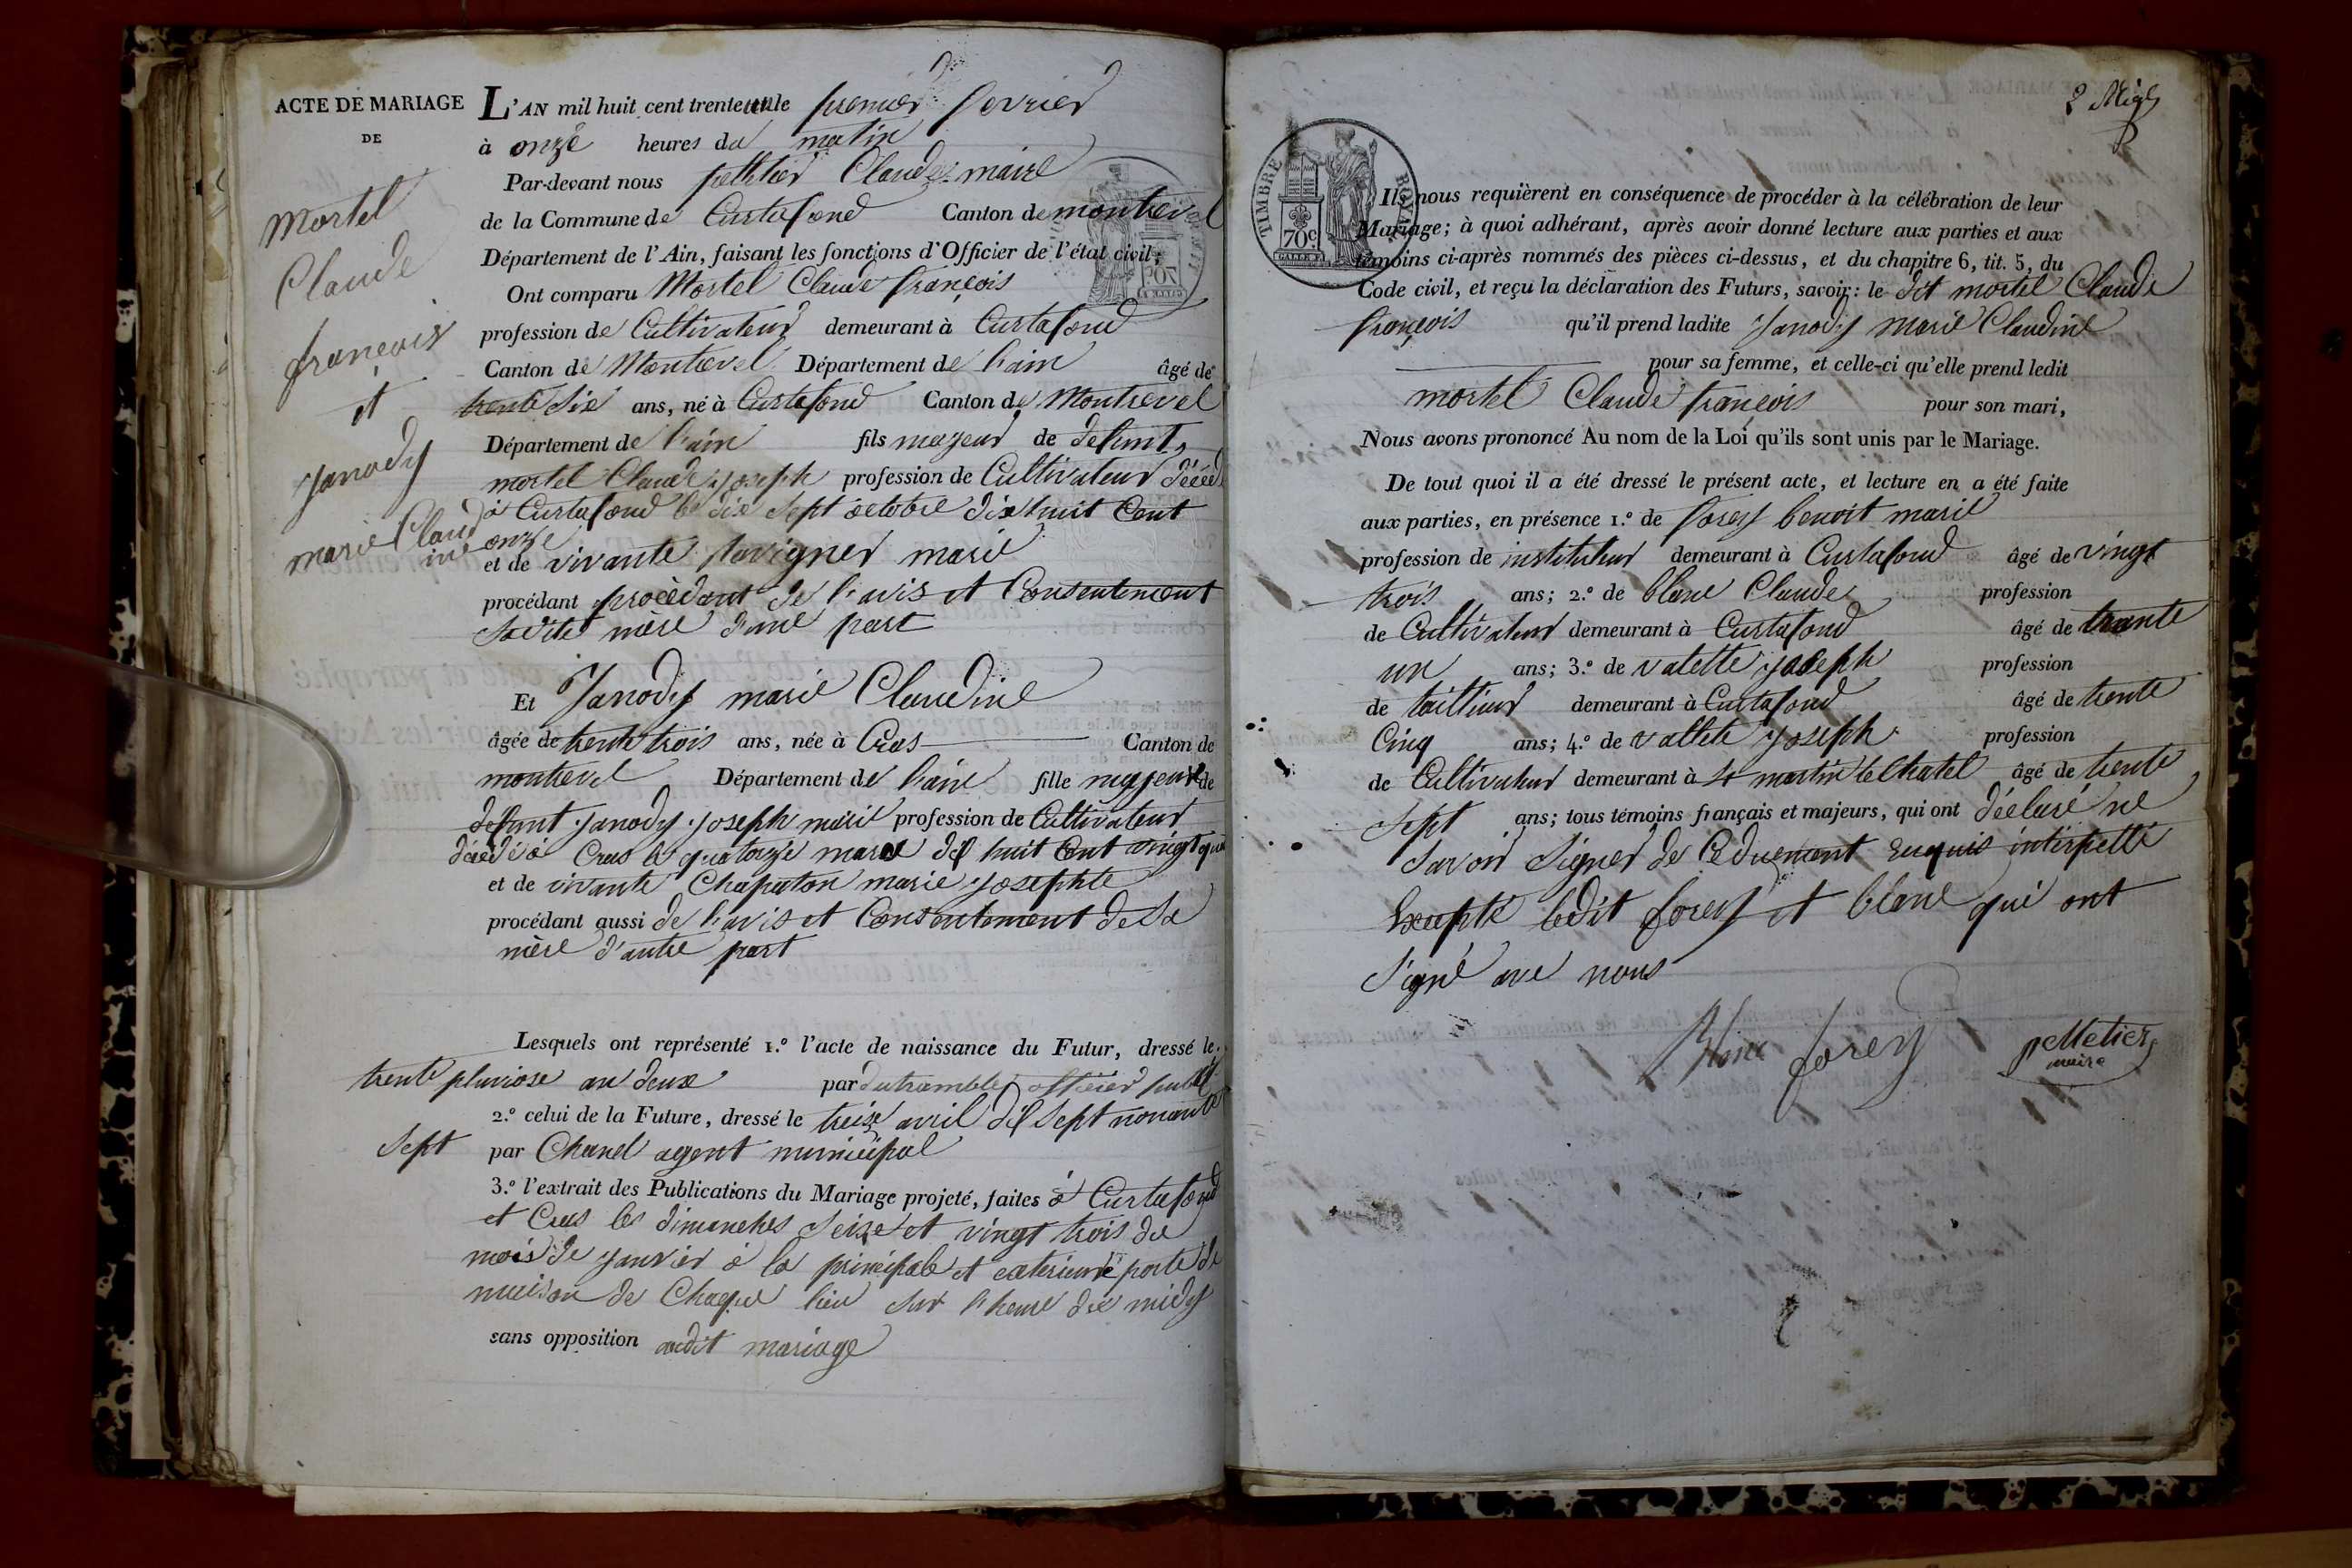 ACTE DE MARIAGE
DE
Mortel
Claude
françois
et
Janody
marie Claud
ine
L'AN mil huit cent trente un le premier fevrier
à onze heures du matin
Par-devant nous pelletier Claude maire
de la Commune de Curtafond Canton de montrevel
Département de l'Ain, faisant les fonctions d'Officier de l'état civil;
Ont comparu Mortel Claude françois
profession de Cultivateur demeurant à Curtafond
Canton de Montrevel Département de l'ain âgé de
trente six ans, né à Curtafond Canton de Montrevel
Département de l'ain fils majeur de defunt
mortel Claude joseph profession de Cultivateur décédé
à Curtafond le dix sept octobre dix huit Cent
onze
et de vivante marie
procédant procèdant de l'avis et Consentement
sadite mère d'une part
Et Janody marie Claudine
âgée de trente trois ans, née à Cras Canton de
montrevel Département de l'ain fille majeure de
defunt janody joseph marie profession de Cultivateur
décédé à Cras le quatorze mars dix huit Cent vingt
et de vivante Chaputon marie josephte
procédant aussi de l'avis et Consentement de sa
mère d'autre part
Lesquels ont représenté 1.º l'acte de naissance du Futur, dressé le
trente pluviose an deux par officier public
2.º celui de la Future, dressé le treize avril dix sept nonante
sept par Chanel agent municipal
3.º l'extrait des Publications du Mariage projeté, faites à Curtafond
et Cras les dimanches seize et vingt trois du
mois de janvier à la principale et exterieure porte de
maison de Chaque lieu sur l'heure de midy
sans opposition audit mariage
2
TIMBRE ROYAL
70c
Ils nous requièrent en conséquence de procéder à la célébration de leur
Mariage; à quoi adhérant, après avoir donné lecture aux parties et aux
témoins ci-après nommés des pièces ci-dessus, et du chapitre 6, tit. 5, du
Code civil, et reçu la déclaration des Futurs, savoir: le dit mortel Claude
françois qu'il prend ladite Janody marie Claudine
pour sa femme, et celle-ci qu'elle prend ledit
mortel Claude françois pour son mari,
Nous avons prononcé Au nom de la Loi qu'ils sont unis par le Mariage.
De tout quoi il a été dressé le présent acte, et lecture en a été faite
aux parties, en présence 1.º de forey benoit marie
profession de instituteur demeurant à Curtafond âgé de vingt
trois ans; 2.º de blanc Claude profession
de Cultivateur demeurant à Curtafond âgé de trante
un ans; 3.º de valette joseph profession
de tailleur demeurant à Curtafond âgé de trente
Cinq ans; 4.º de vallete joseph profession
de Cultivateur demeurant à St martin le Chatel âgé de trente
sept ans; tous témoins français et majeurs, qui ont déclaré ne
savoir signer de Ce duement requis interpellé
Excepté ledit forey et blanc qui ont
signé ave nous
Blanc forey pelletier
maire